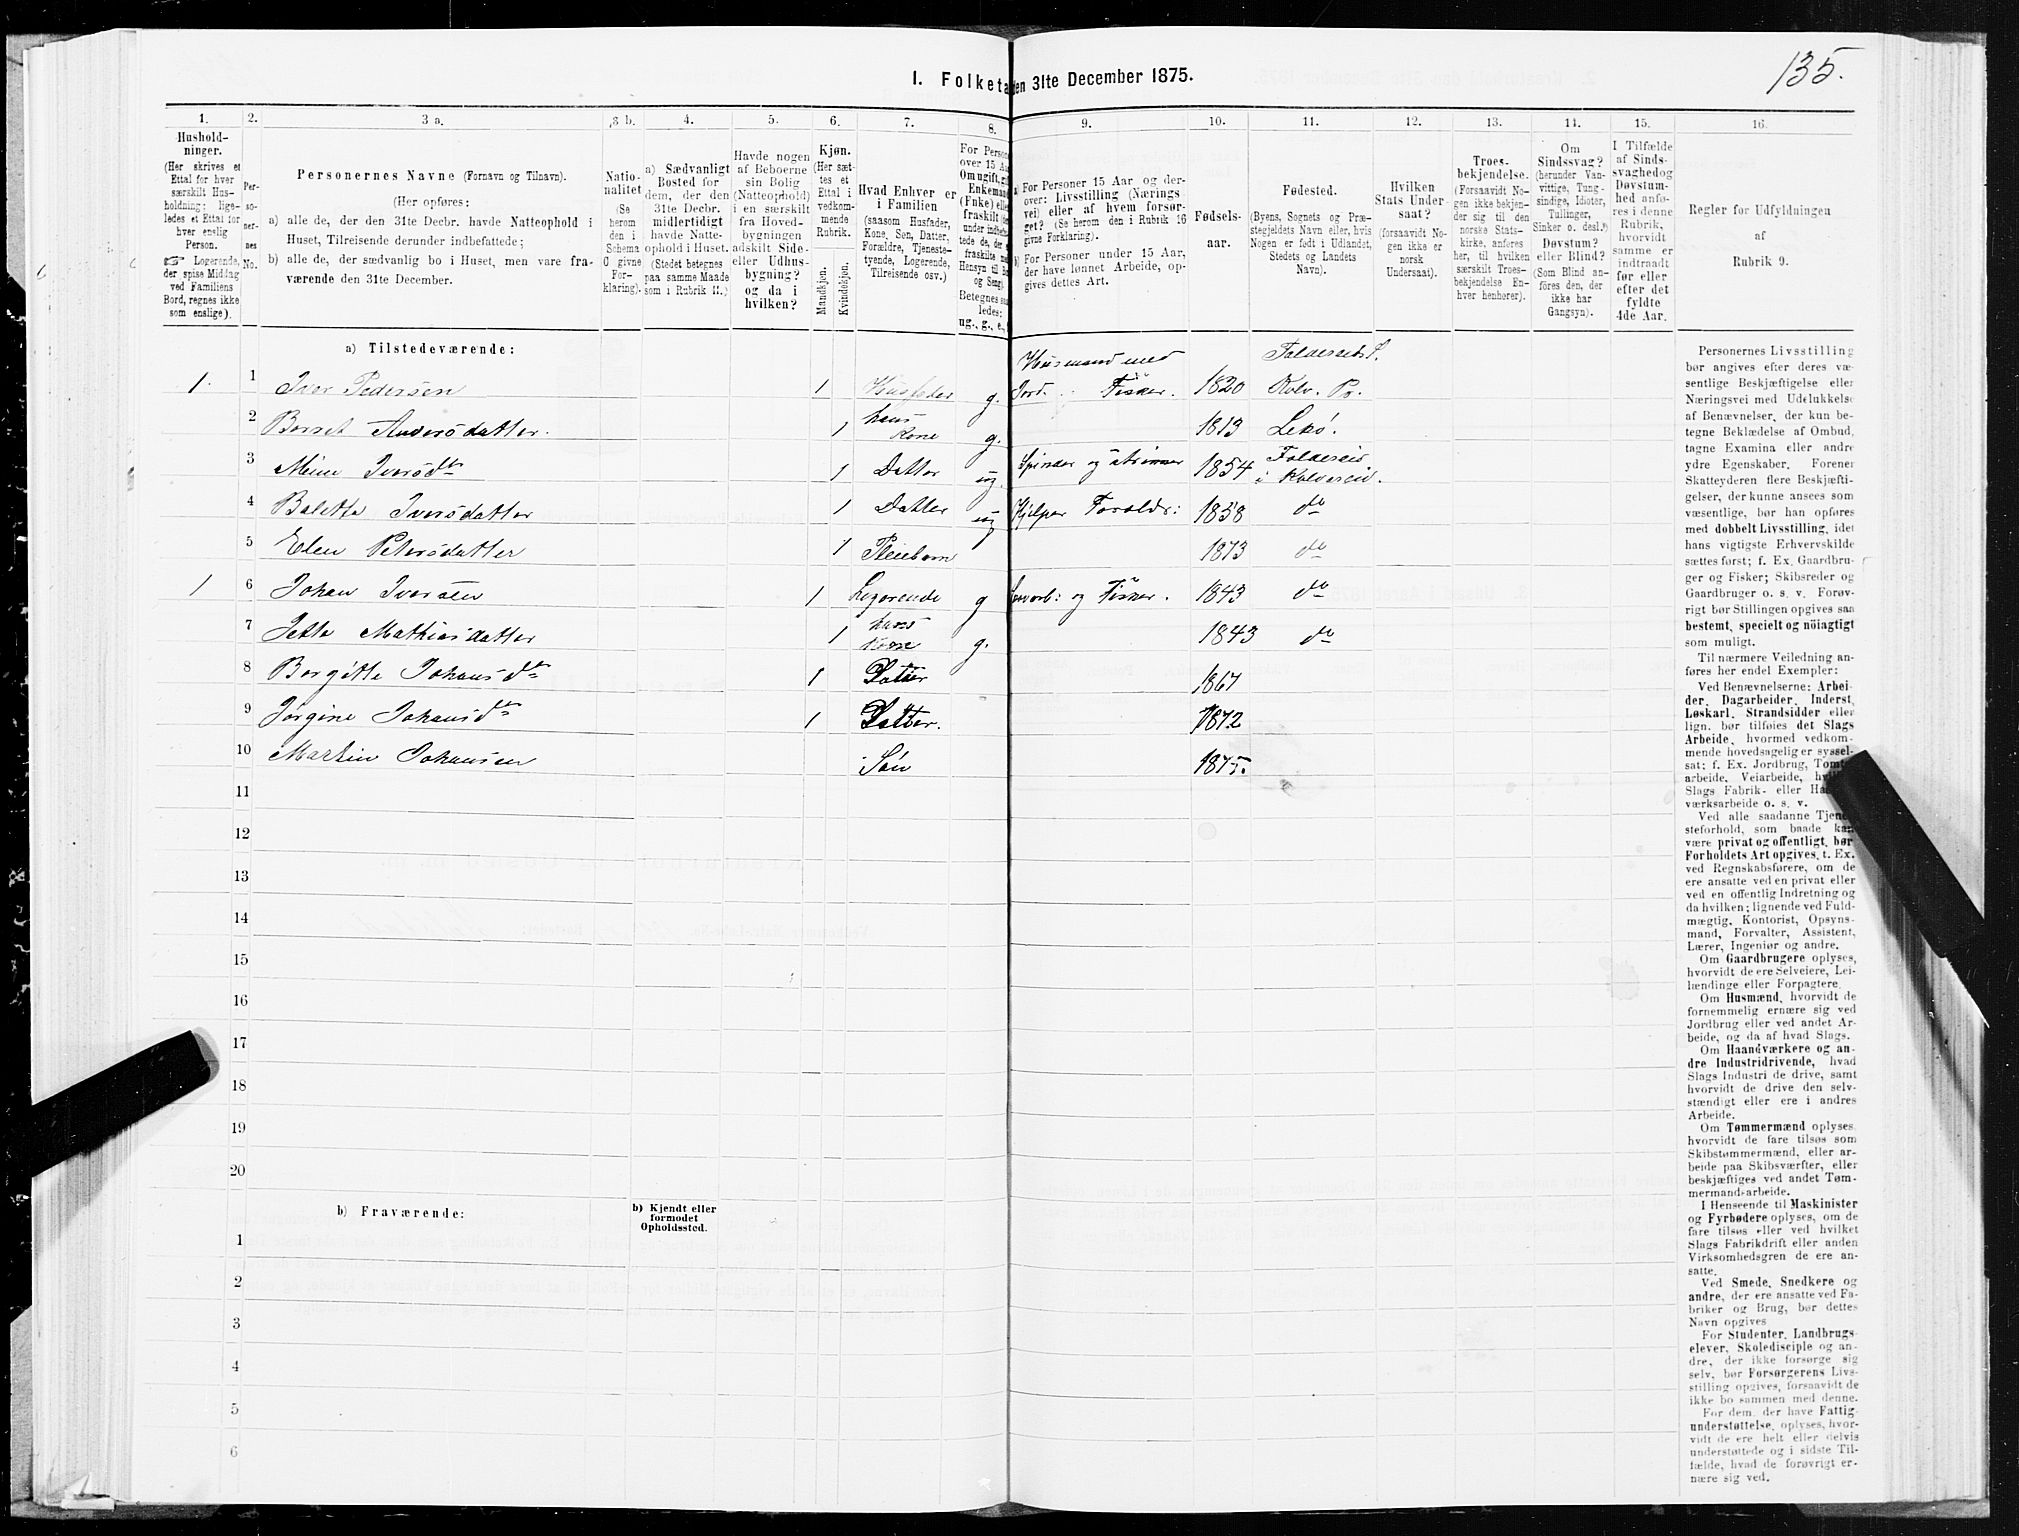 135.
I. Folketa den 31te December 1875.
1. 2. 3 a. 3 b. 4. 5. 6. 7. 8. 9. 10. 11. 12. 13. 14. 15. 16.
Hushold-
ninger.
(Her skrives et
Ettal for hver
særskilt Hus-
holdning; lige-
ledes et Ettal for
hver enslig
Person.
☞ Logerende,
der spise Middag
ved Familiens
Bord, regnes ikke
som enslige).
Per-
so-
ner-
nes
No.
Personernes Navne (Fornavn og Tilnavn).
(Her opføres:
a) alle de, der den 31te Decbr. havde Natteophold i
Huset, Tilreisende derunder indbefattede;
b) alle de, der sædvanlig bo i Huset, men vare fra-
værende den 31te December.
Natio-
nalitet
(Se
herom
den i
Schema
C givne
For-
klaring).
a) Sædvanligt
Bosted for
dem, der den
31te Decbr.
midlertidigt
havde Natte-
ophold i Huset.
(Stedet betegnes
paa samme Maade
som i Rubrik 11.)
Havde nogen
af Beboerne
sin Bolig
(Natteophold)
i en særskilt
fra Hoved-
bygningen
adskilt Side-
eller Udhus-
bygning?
og da i
hvilken?
Kjøn.
(Her sæt-
tes et
Ettal i
vedkom-
mende
Rubrik.
Mandkjøn.
Kvindekjøn.
Hvad Enhver er
i Familien
(saasom Husfader,
Kone, Søn, Datter,
Forældre, Tjeneste-
tyende, Logerende,
Tilreisende osv.)
For Person
over 15 Aa
Om ugift, gi
Enkeman
(Fnke) elle
fraskilt
under indbe
tede de, der
fraskilte
Hensyn til B
og Seng).
Betegnes saa
ledes:
ug., g., e.,
a) For Personer 15 Aar og der-
over: Livsstilling (Nærings
vei) eller af hvem forsør-
get? (Se herom den i Rubrik 16
givne Forklaring).
b) For Personer under 15 Aar,
der have lønnet Arbeide, op-
gives dettes Art.
Fødsels-
aar.
Fødested.
(Byens, Sognets og Præ-
stegjeldets Navn eller, hvis
Nogen er født i Udlandet,
Stedets og Landets
Navn).
Hvilken
Stats Under-
saat?
(forsaavidt No-
gen ikke er
norsk
Undersaat).
Troes-
bekjendelse.
(Forsaavidt No-
gen ikke bekjen-
der sig til den
norske Stats-
kirke, anføres
her, til hvilken
særskilt Troes-
bekjendelse En-
hver henhører).
Om
Sindssvag?
(herunder Van-
vittige, Tung-
sindige, Idioter,
Tullinger,
Sinker o. desl.)
Døvstum?
eller Blind?
(Som Blind an-
føres den, der
ikke har
Gangsyn).
I Tilfælde
af Sinds-
svaghed og
Døvstum-
hed anfø-
res i denne
Rubrik,
hvorvidt
samme er
indtraadt
før eller
efter det
fyldte
4de Aar.
Regler for Udfyldningen
af
Rubrik 9.
a) Tilstedeværende:
Husmand med Foldereids S.
1 1 Iver Pedersen 1 Husfader g. Jord. Fisker. 1820 Kolv. Pr.
2 Beret Andersdatter. 1 hans Kone g. 1813 Lekø.
3 Mine Iversdtr 1 Datter ug. Spinder og Strikker 1854 Foldereid i Kolvereid.
4 Beletta Iversdatter 1 Datter ug Hjelper Foreldr: 1858 do
5 Elen Petersdatter 1 Pleiebarn 1873 do
1 6 Johan Iversen 1 Logerende g og Fisker. 1843 do
7 Jette Mathiasdatter 1 hans Kone g. 1843 do
8 Bergitte Johansdtr 1 Datter 1867
9 Jørgine Johansdtr 1 Datter. 1872
10 Martin Johansen Søn 1875.
11
12
13
14
15
16
17
18
19
20
b) Fraværende:
b) Kjendt eller
formodet
Opholdssted.
1
2
3
4
5
6
Personernes Livsstilling
bør angives efter deres væ-
sentlige Beskjæftigelse eller
Næringsvei med Udelukkelse
af Benævnelser, der kun be-
tegne Beklædelse af Ombud,
tagne Examina eller andre
ydre Egenskaber. Forener
Skatteyderen flere Beskjæfti-
gelser, der kunne ansees som
væsentlige, bør han opføres
med dobbelt Livsstilling, idet
hans vigtigste Erhvervskilde
sættes først; f. Ex. Gaardbru-
ger og Fisker; Skibsreder og
Gaardbruger o. s. v. Forøv-
rigt bør Stillingen opgives saa
bestemt, specielt og nöiagtigt
som muligt.
Til nærmere Veiledning an-
føres her endel Exempler:
Ved Benævnelserne: Arbei-
der, Dagarbeider, Inderst,
Løskarl, Strandsidder eller
lign. bør tilføies det Slags
Arbeide, hvormed vedkom-
mende hovedsagelig er syssel-
sat; f. Ex. Jordbrug, Tomte-
arbeide, Veiarbeide,
Slags Fabrik- eller
værksarbeide o. s. v.
Ved alle saadanne Tjene-
steforhold, som baade kan
være privat og offentligt, bør
Forholdets Art opgives, t. Ex.
ved Regnskabsførere, om de
ere ansatte ved en privat eller
ved en offentlig Indretning og
da hvilken; lignende ved Fuld-
mægtig, Kontorist, Opsyns-
mand, Forvalter, Assistent,
Lærer, Ingeniør og andre.
Om Gaardbrugere oplyses,
hvorvidt de ere Selveiere, Lei-
lændinge eller Forpagtere.
Om Husmænd, hvorvidt de
fornemmelig ernære sig ved
Jordbrug eller ved andet Ar-
beide, og da af hvad Slags.
Om Haandværkere og an-
dre Industridrivende, hvad
Slags Industri de drive, samt
hvorvidt de drive den selv-
stændigt eller ere i andres
Arbeide.
Om Tømmermænd oplyses
hvorvidt de fare tilsøs som
Skibstømmermænd, eller ar-
beide paa Skibsværfter, eller
beskjæftiges ved andet Tøm-
mermandsarbeide.
I Henseende til Maskinister
og Fyrbødere oplyses, om de
fare tilsøs eller ved hvilket
Slags Fabrikdrift eller anden
Virksomhedsgren de ere an-
satte.
Ved Smede, Snedkere og
andre, der ere ansatte ved Fa-
briker og Brug, bør dettes
Navn opgives
For Studenter, Landbrugs-
elever, Skoledisciple og an-
dre, der ikke forsørge sig
selv, bør Forsørgerens Livs-
stilling opgives, forsaavidt de
ikke bo sammen med denne.
For dem, der have Fattig-
understøttelse, oplyses, hvor-
vidt de ere helt eller delvis
understøttede og i sidste Til-
fælde, hvad de forøvrigt er-
nære sig ved.